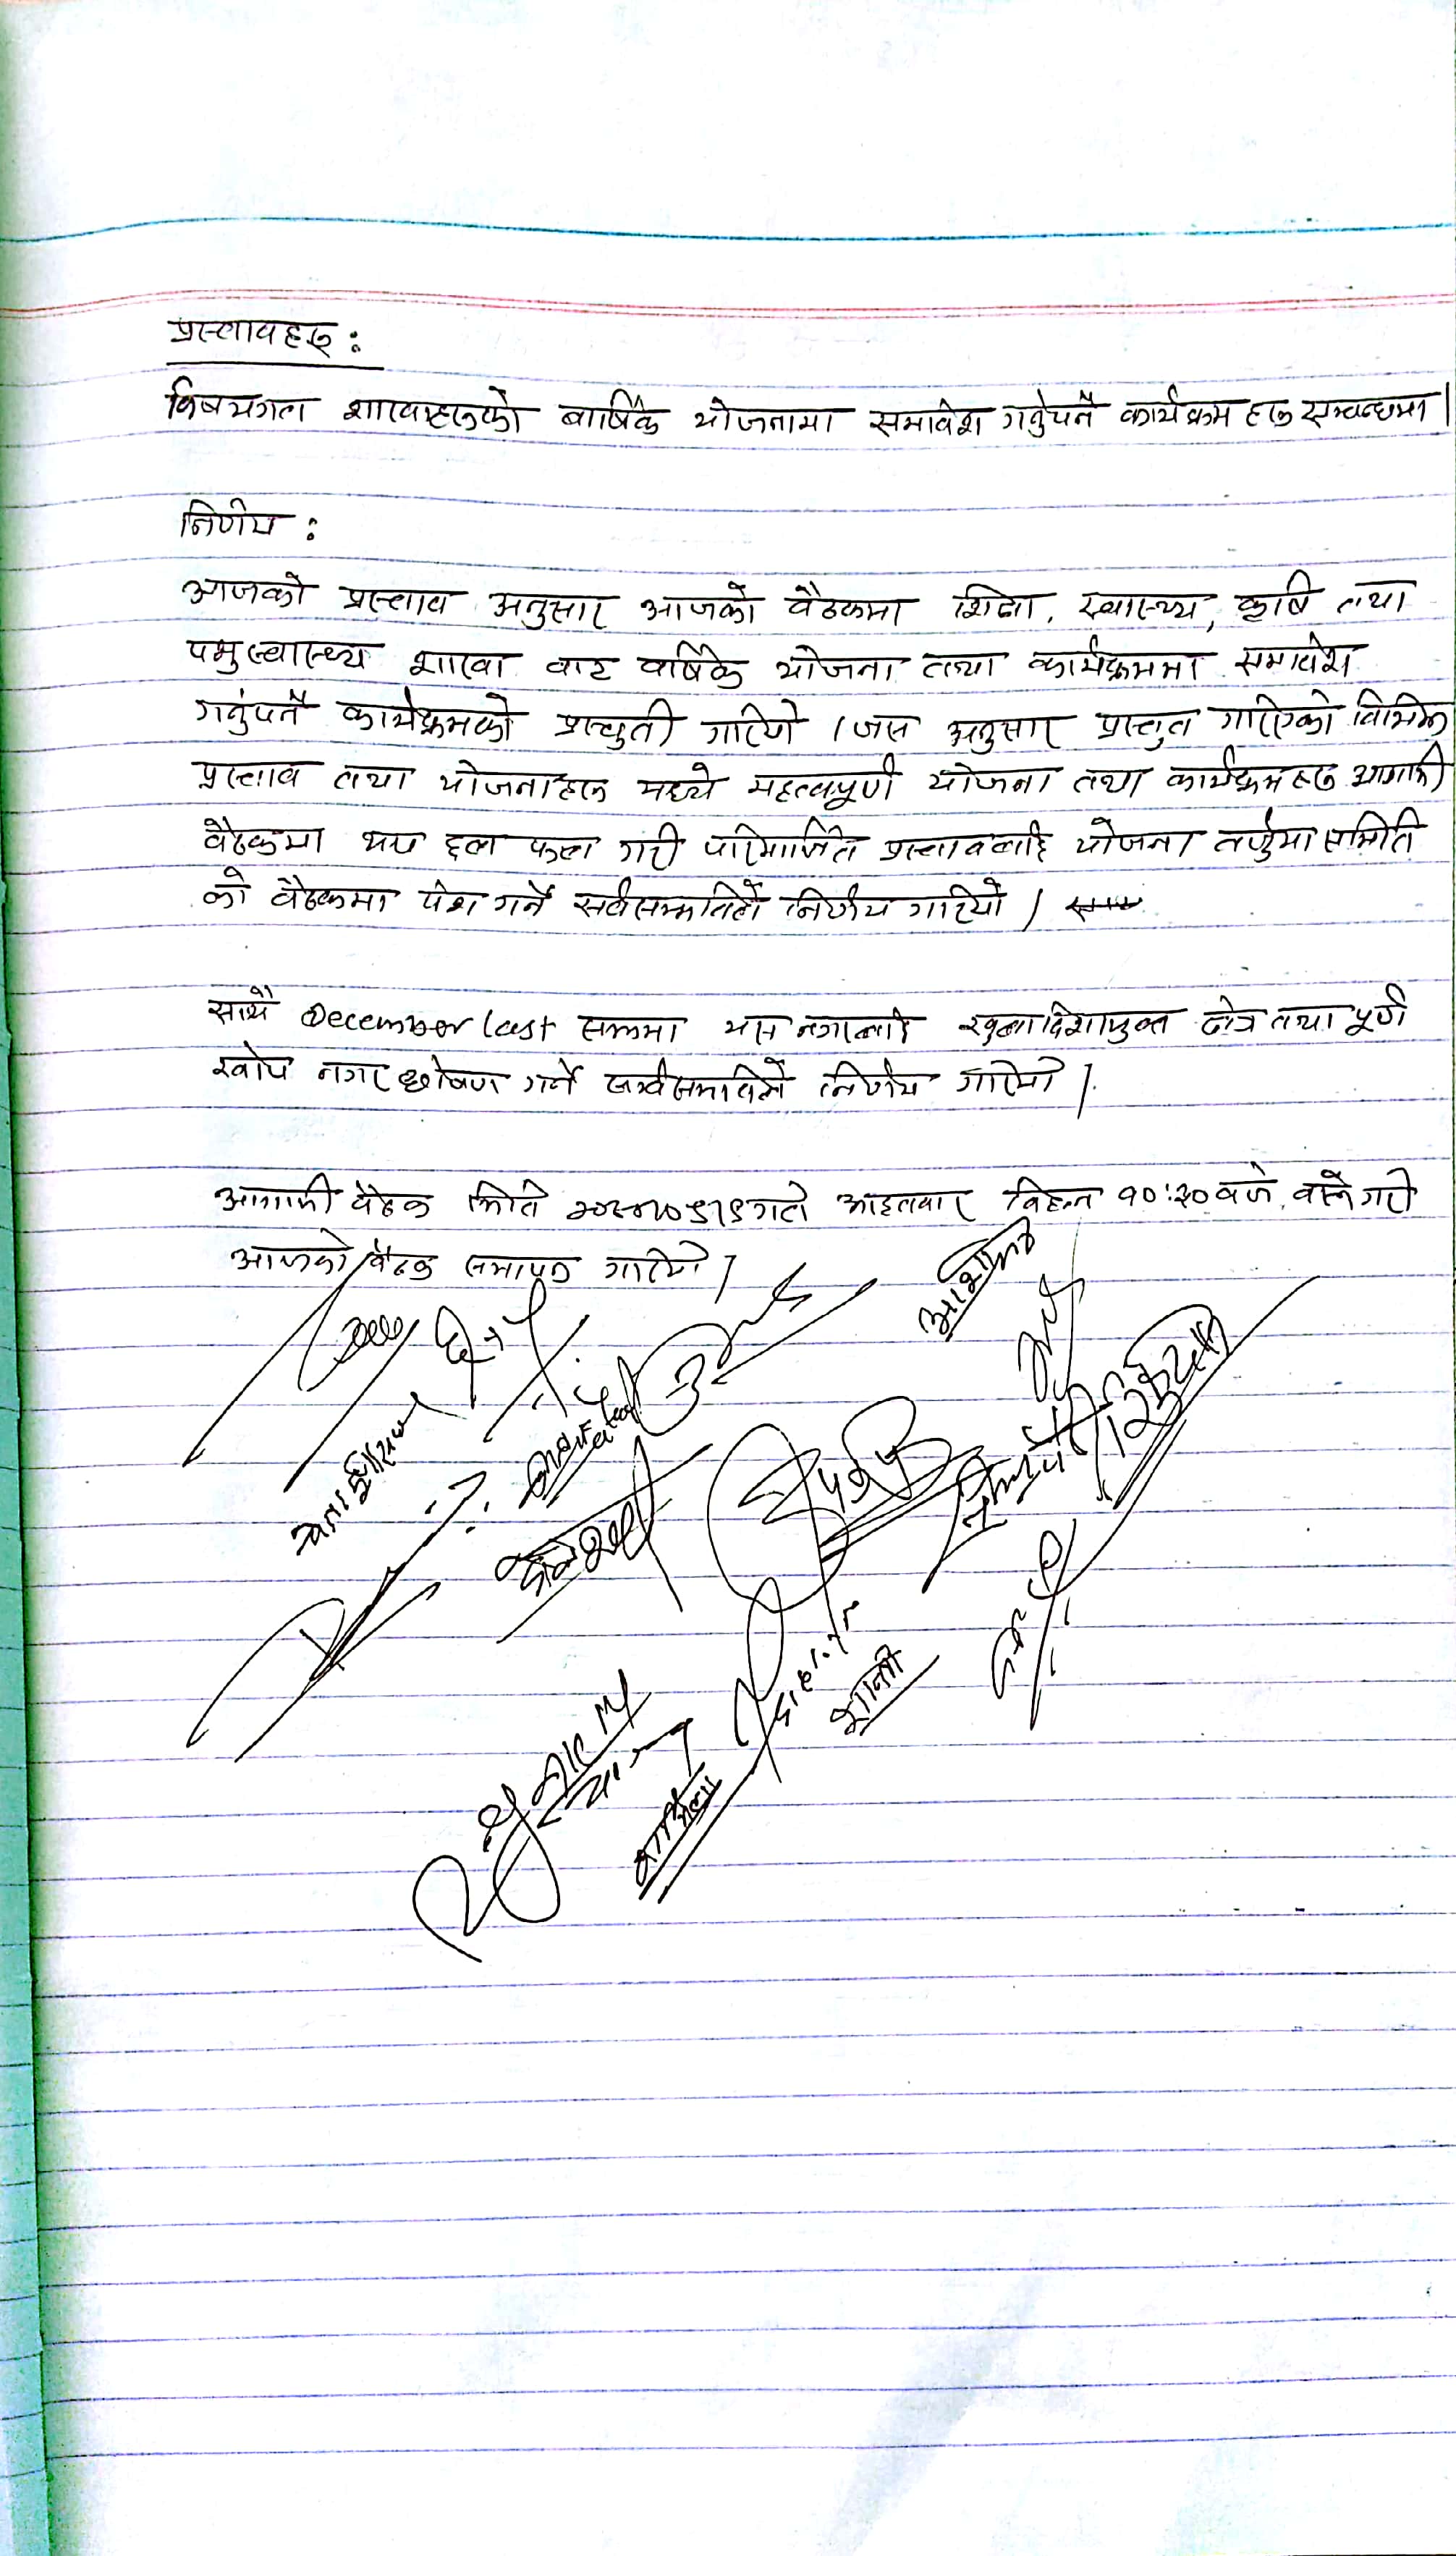 प्रस्तावहरू :
विषयगत शाखाहरूको बार्षिक योजनामा समावेश गर्नुपर्ने कार्यक्रम हरू सम्वन्धमा |
निर्णय :
आजको प्रस्ताव अनुसार आजको वैठकमा शिक्षा, स्वास्थ्य, कृषि तथा
पशु स्वास्थ्य शाखा वाट वार्षिक योजना तथा कार्यक्रममा समावेश
गर्नुपर्ने कार्यक्रमको प्रस्तुती गरियो । जस अनुसार प्रस्तुत गरिएको विभिन्न
प्रस्ताव तथा योजनाहरू मध्ये महत्वपूर्ण योजना तथा कार्यक्रम हरू आगामी
वैठकमा थप छल फल गरी परिमार्जित प्रस्तावलाई योजना तर्जुमा समिति
को वैठकमा पेश गर्ने सर्वसम्मतिले निर्णय गरियो |
साथै December last सम्ममा यस नगरलाई खुला दिशामुक्त क्षेत्र तथा पूर्ण
खोप नगर घोषणा गर्ने सर्वसम्मतिले निर्णय गरियो |
आगामी वैठक मिति गते आइतवार विहान १०:३० वजे वस्ने गरी
आजको वैठक समापन गरियो |
शान्ती